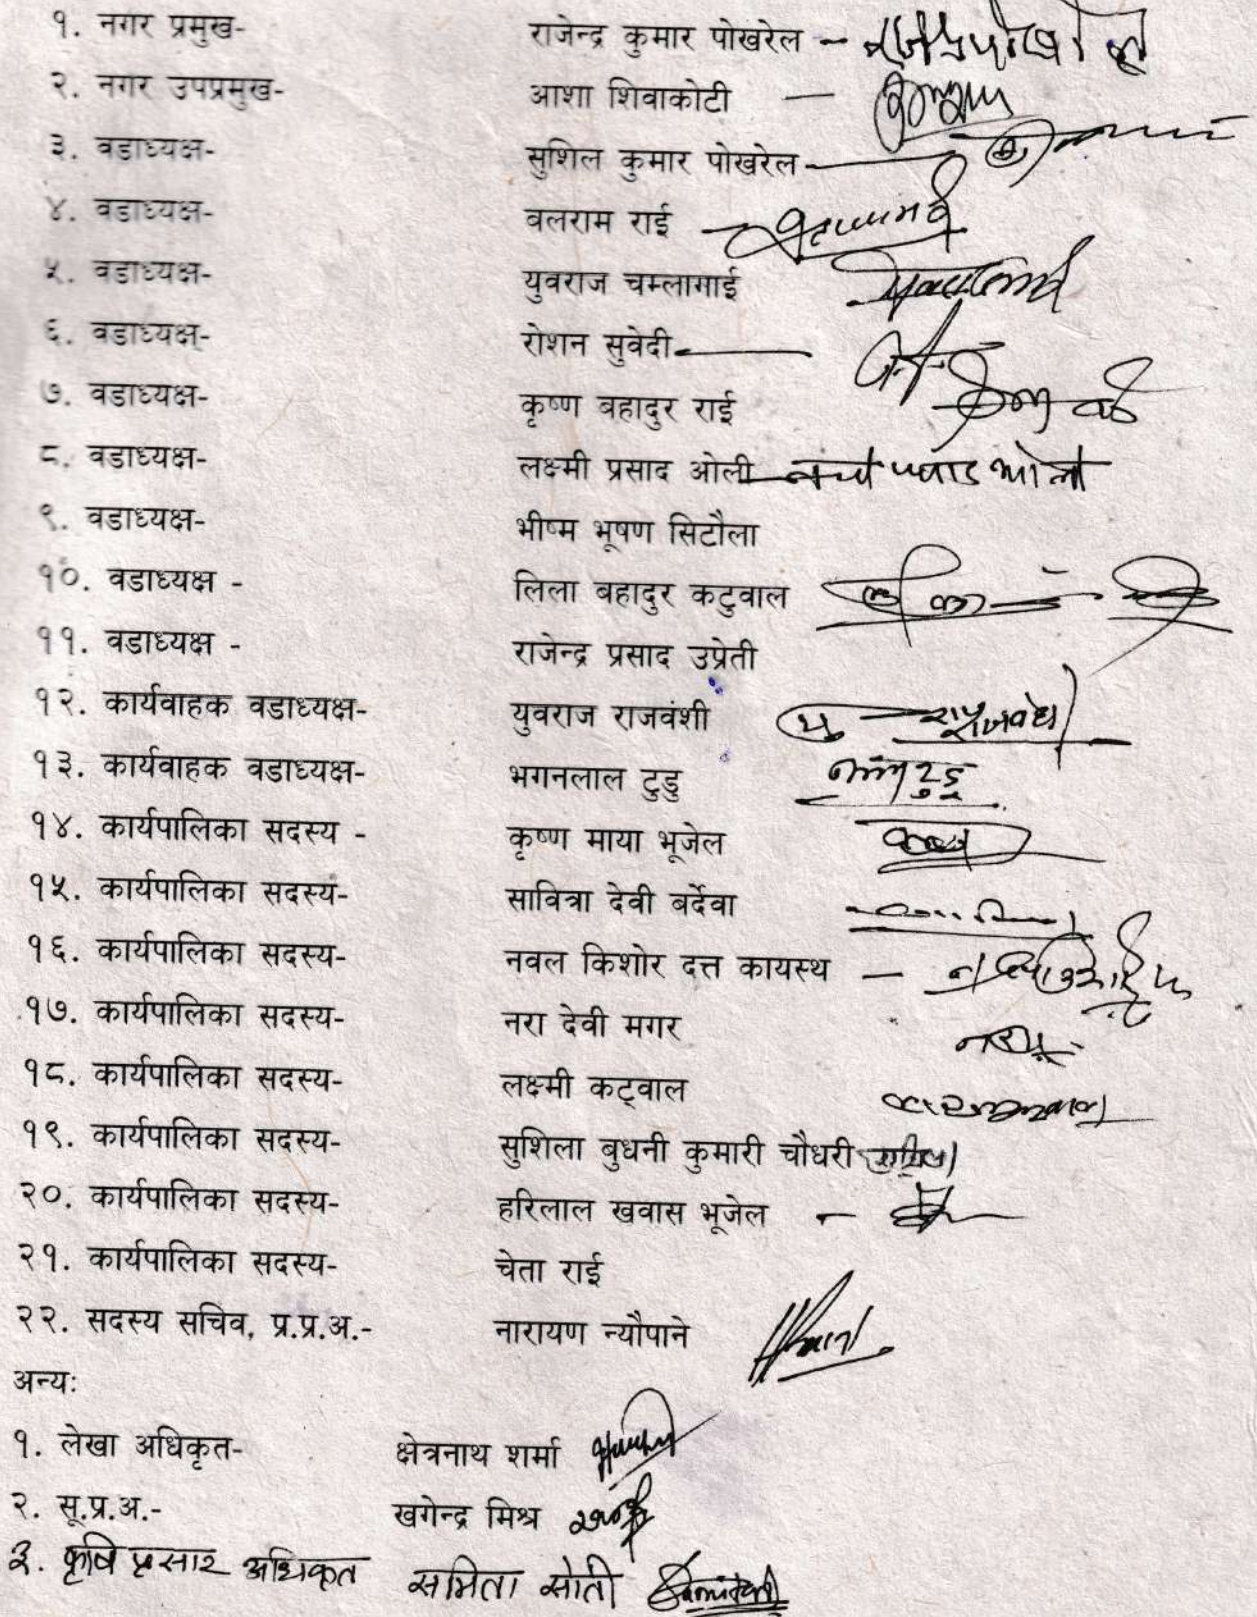 १. नगर प्रमुख- राजेन्द्र कुमार पोखरेल -
२. नगर उपप्रमुख- आशा शिवाकोटी -
३. वडाध्यक्ष- सुशिल कुमार पोखरेल
४. वडाध्यक्ष- बलराम राई
५. वडाध्यक्ष- युवराज चम्लागाई
६. वडाध्यक्ष- रोशन सुवेदी
७. वडाध्यक्ष- कृष्ण बहादुर राई
८. वडाध्यक्ष- लक्ष्मी प्रसाद ओली
९. वडाध्यक्ष- भीष्म भूषण सिटौला
१०. वडाध्यक्ष - लिला बहादुर कटुवाल
११. वडाध्यक्ष - राजेन्द्र प्रसाद उप्रेती
१२. कार्यवाहक वडाध्यक्ष- युवराज राजवंशी
१३. कार्यवाहक वडाध्यक्ष- भगनलाल टुडु
१४. कार्यपालिका सदस्य - कृष्ण माया भूजेल
१५. कार्यपालिका सदस्य- सावित्रा देवी बर्देवा
१६. कार्यपालिका सदस्य- नवल किशोर दत्त कायस्थ -
१७. कार्यपालिका सदस्य- नरा देवी मगर
१८. कार्यपालिका सदस्य- लक्ष्मी कट्वाल
१९. कार्यपालिका सदस्य- सुशिला बुधनी कुमारी चौधरी
२०. कार्यपालिका सदस्य- हरिलाल खवास भूजेल -
२१. कार्यपालिका सदस्य- चेता राई
२२. सदस्य सचिव, प्र.प्र.अ.- नारायण न्यौपाने
अन्य:
१. लेखा अधिकृत- क्षेत्रनाथ शर्मा
२. सू.प्र.अ.- खगेन्द्र मिश्र
३. कृषि प्रसार अधिकृत समिता सोती